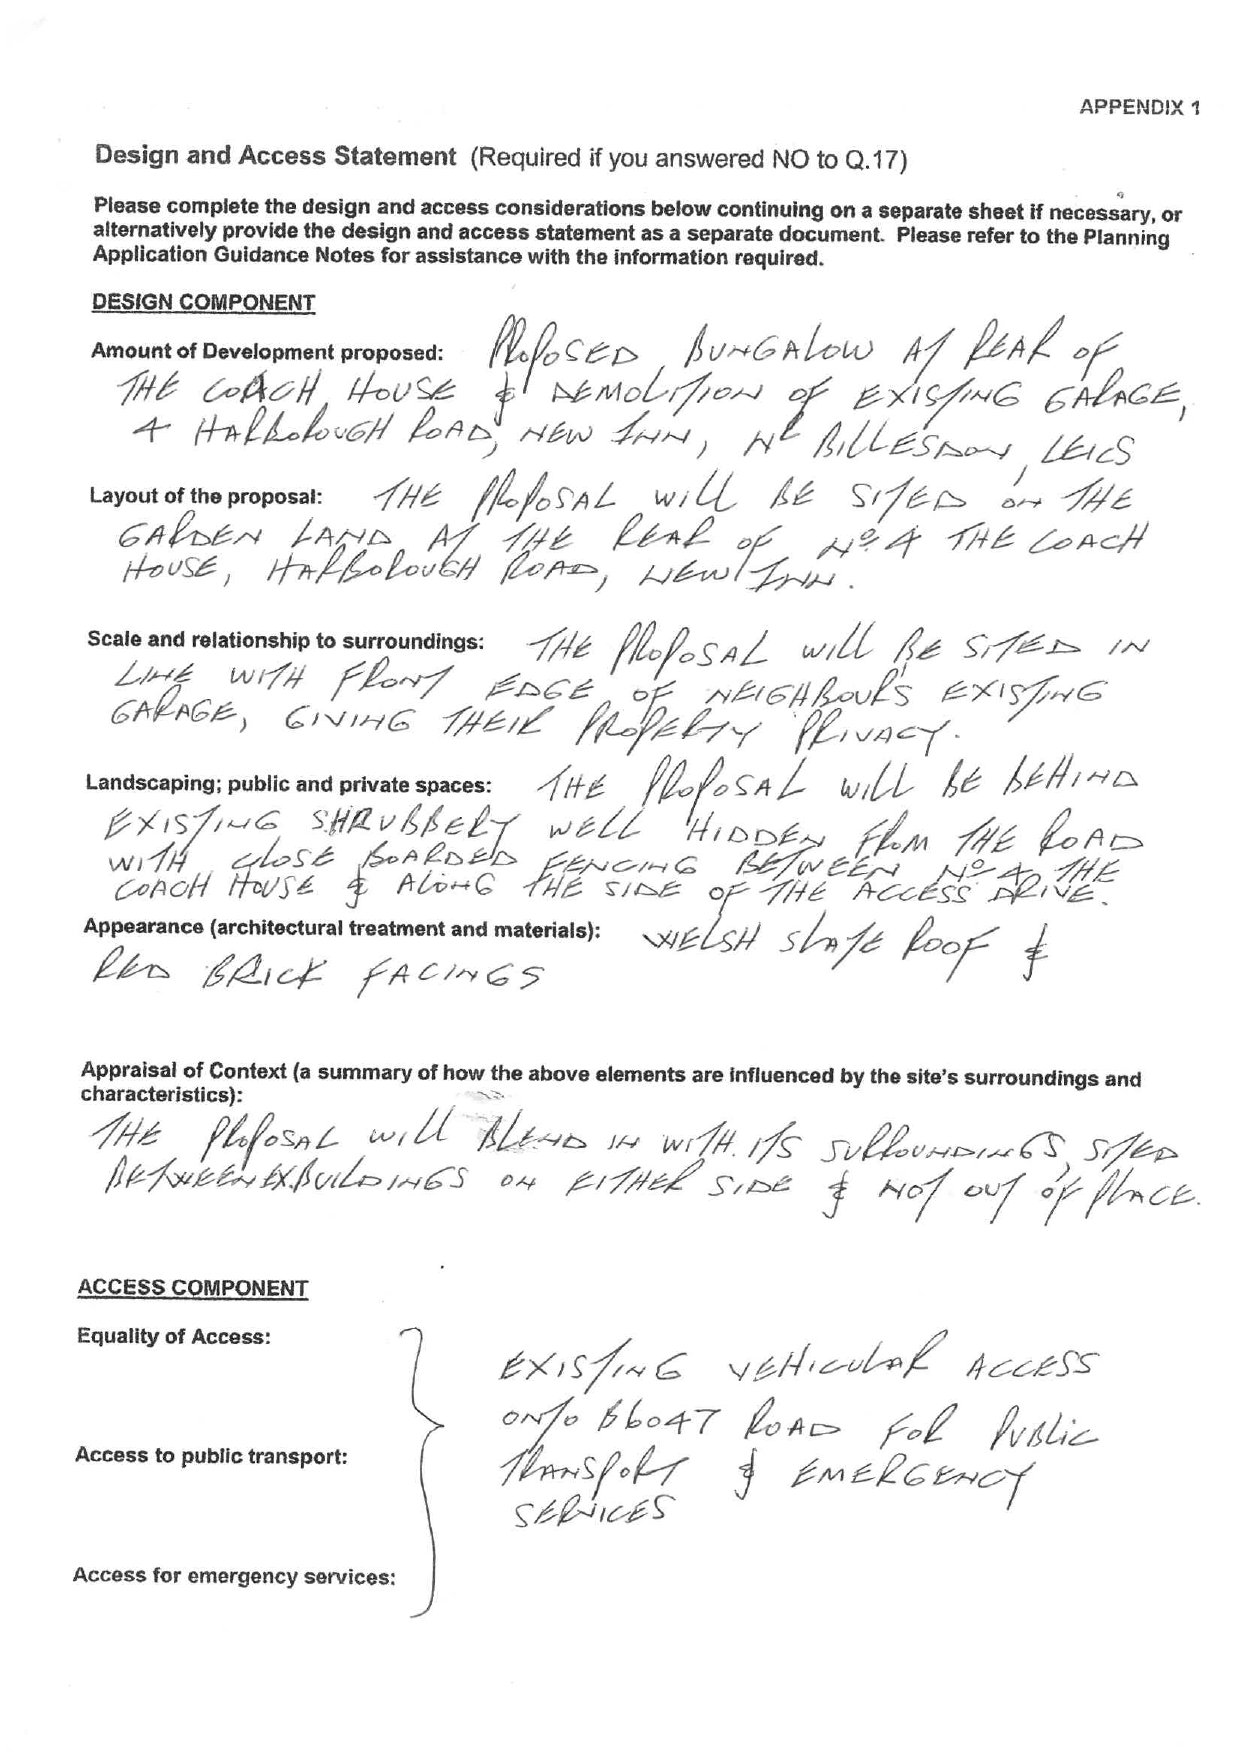 APPENDIX 1
Design and Access Statement (Required if you answered NO to Q.17)
Please complete the design and access considerations below continuing on a separate sheet if necessary, or
alternatively provide the design and access statement as a separate document. Please refer to the Planning
Application Guidance Notes for assistance with the information required.
DESIGN COMPONENT
Amount of Development proposed: PROPOSED BUNGALOW AT REAR OF
THE COACH HOUSE & DEMOLITION OF EXISTING GARAGE,
4 HARBOROUGH ROAD, NEW INN, NR BILLESDON, LEICS
Layout of the proposal: THE PROPOSAL WILL BE SITED ON THE
GARDEN LAND AT THE REAR OF No 4 THE COACH
HOUSE, HARBOROUGH ROAD, NEW INN.
Scale and relationship to surroundings: THE PROPOSAL WILL BE SITED IN
LINE WITH FRONT EDGE OF NEIGHBOUR'S EXISTING
GARAGE, GIVING THEIR PROPERTY PRIVACY.
Landscaping; public and private spaces: THE PROPOSAL WILL BE BEHIND
EXISTING SHRUBBERY WELL HIDDEN FROM THE ROAD
WITH CLOSE BOARDED FENCING BETWEEN No 4, THE
COACH HOUSE & ALONG THE SIDE OF THE ACCESS DRIVE.
Appearance (architectural treatment and materials): WELSH SLATE ROOF &
RED BRICK FACINGS
Appraisal of Context (a summary of how the above elements are influenced by the site's surroundings and
characteristics):
THE PROPOSAL WILL BLEND IN WITH ITS SURROUNDINGS, SITED
BETWEEN EX. BUILDINGS ON EITHER SIDE & NOT OUT OF PLACE.
ACCESS COMPONENT
Equality of Access:
EXISTING VEHICULAR ACCESS
ONTO B6047 ROAD FOR PUBLIC
Access to public transport:
TRANSPORT & EMERGENCY
SERVICES
Access for emergency services: